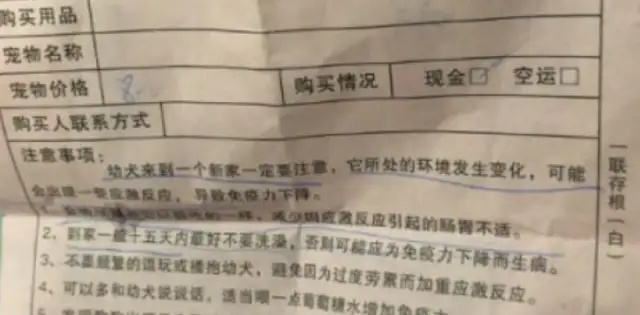 购买用品
宠物名称
宠物价格 8 购买情况 现金□ 空运□
购买人联系方式
注意事项：
幼犬来到一个新家一定要注意，它所处的环境发生变化，可能
会出现一些应激反应，导致免疫力下降。
一样，减少因应激反应引起的肠胃不适。
2、到家一般十五天内最好不要洗澡，否则可能应为免疫力下降而生病。
3、不要频繁的逗玩或搂抱幼犬，避免因为过度劳累而加重应激反应。
4、可以多和幼犬说说话，适当喂一点葡萄糖水增加免疫力
一联存根（白）